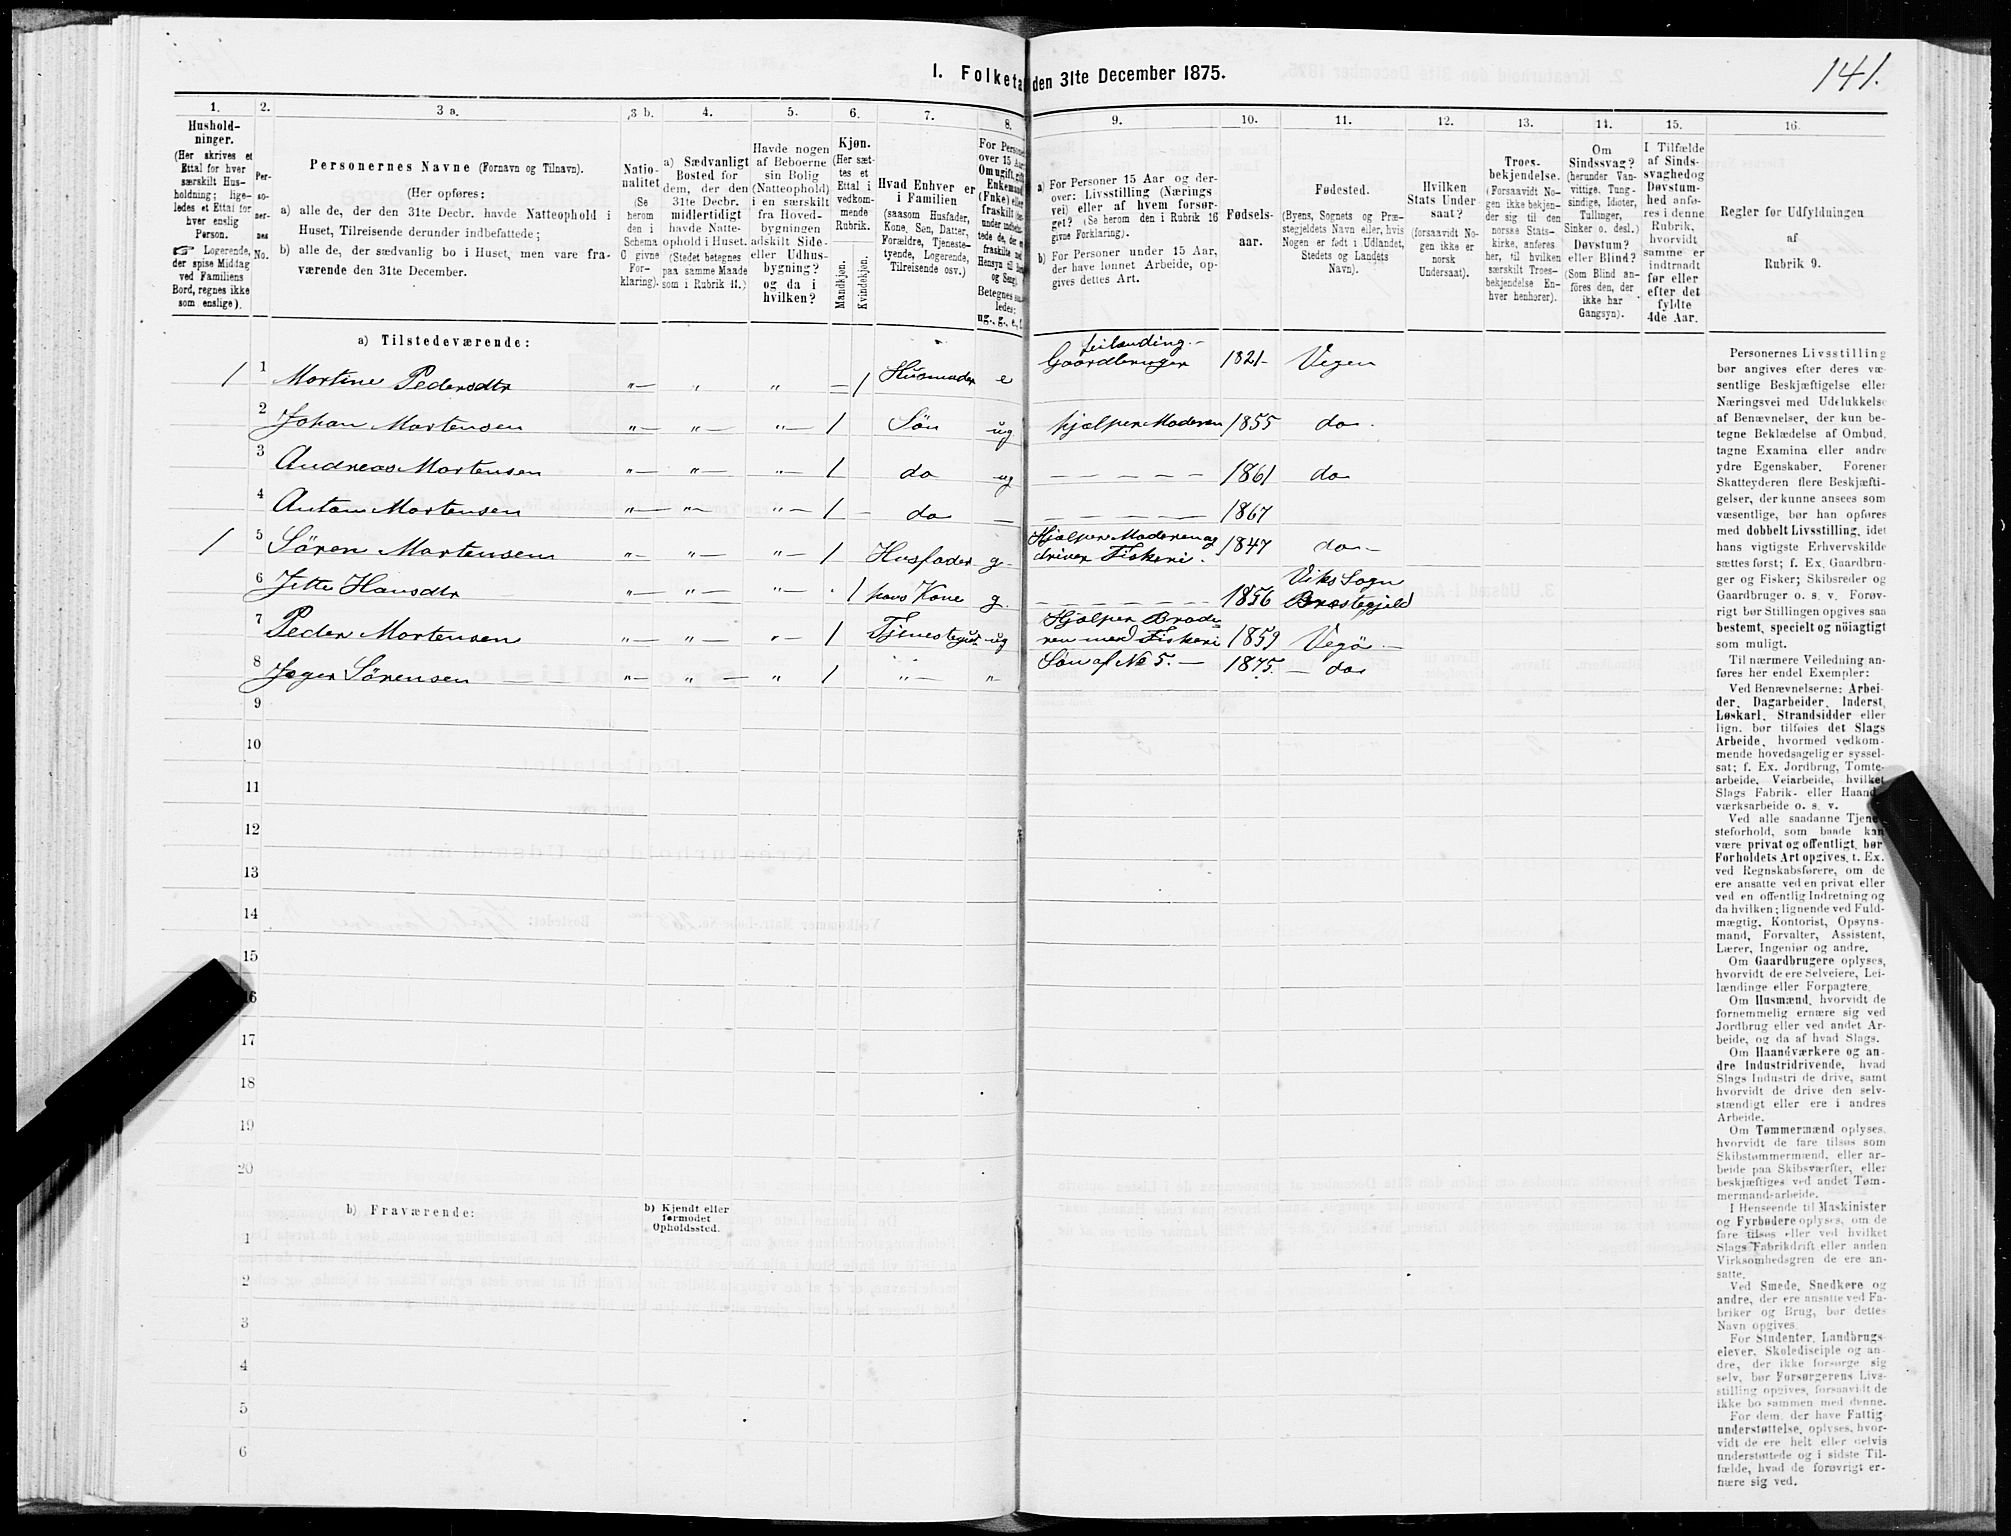 141.
I. Folketæ den 31te December 1875.
1. 2. 3 a. 3 b. 4. 5. 6. 7. 8. 9. 10. 11. 12. 13. 14. 15. 16.
Hushold-
ninger.
(Her skrives et
Ettal for hver
særskilt Hus-
holdning; lige-
ledes et Ettal for
hver enslig
Person.
☞ Logerende,
der spise Middag
ved Familiens
Bord, regnes ikke
som enslige).
Per-
so-
ner-
nes
No.
Personernes Navne (Fornavn og Tilnavn).
(Her opføres:
a) alle de, der den 31te Decbr. havde Natteophold i
Huset, Tilreisende derunder indbefattede;
b) alle de, der sædvanlig bo i Huset, men vare fra-
værende den 31te December.
Natio-
nalitet
(Se
herom
den i
Schema
C givne
For-
klaring).
a) Sædvanligt
Bosted for
dem, der den
31te Decbr.
midlertidigt
havde Natte-
ophold i Huset.
(Stedet betegnes
paa samme Maade
som i Rubrik 11.)
Havde nogen
af Beboerne
sin Bolig
(Natteophold)
i en særskilt
fra Hoved-
bygningen
adskilt Side-
eller Udhus-
bygning?
og da i
hvilken?
Kjøn.
(Her sæt-
tes et
Ettal i
vedkom-
mende
Rubrik.
Mandkjøn.
Kvindekjøn.
Hvad Enhver er
i Familien
(saasom Husfader,
Kone, Søn, Datter,
Forældre, Tjeneste-
tyende, Logerende,
Tilreisende osv.)
For Personer
over 15 Aar:
Om ugift, gift,
Enkemand
(Enke) eller
fraskilt
Betegnes saa-
ledes:
ug., g., e., f.
a) For Personer 15 Aar og der-
over: Livsstilling (Nærings-
vei) eller af hvem forsør-
get? (Se herom den i Rubrik 16
givne Forklaring).
b) For Personer under 15 Aar,
der have lønnet Arbeide, op-
gives dettes Art.
Fødsels-
aar.
Fødested.
(Byens, Sognets og Præ-
stegjeldets Navn eller, hvis
Nogen er født i Udlandet,
Stedets og Landets
Navn).
Hvilken
Stats Under-
saat?
(forsaavidt No-
gen ikke er
norsk
Undersaat).
Troes-
bekjendelse.
(Forsaavidt No-
gen ikke bekjen-
der sig til den
norske Stats-
kirke, anføres
her, til hvilken
særskilt Troes-
bekjendelse En-
hver henhører).
Om
Sindssvag?
(herunder Van-
vittige, Tung-
sindige, Idioter,
Tullinger,
Sinker o. desl.)
Døvstum?
eller Blind?
(Som Blind an-
føres den, der
ikke har
Gangsyn).
I Tilfælde
af Sinds-
svaghed og
Døvstum-
hed anfø-
res i denne
Rubrik,
hvorvidt
samme er
indtraadt
før eller
efter det
fyldte
4de Aar.
Regler for Udfyldningen
af
Rubrik 9.
a) Tilstedeværende:
1 1 Martine Pedersdtr "— " " — 1 Husmoder e Gaardbruger leilænding.— 1821— Vegen
2 Johan Mortensen "— "— "— 1 Søn ug hjælper Moderen 1855 do.
3 Andreas Mortensen "— "— "— 1 do ug — — — — 1861 do
4 Antom Mortensen "— "— "— 1 — do — — — — — 1867
1 5 Sören Mortensen "— "— "— 1 Husfader g— Hjælper Moderen og driver Fiskeri. 1847 do—
6 Jette Hansdtr "— "— "— 1 hans Kone g — — — — 1856 Viks Sogn Brøstegjeld
7 Peder Mortensen "— "— "— 1 Tjenestegut ug Hjælper Brode= ren med Fiskeri 1859 Vegö —
8 Jeger Sörensen "— "— " 1 "— "— Søn af No 5.— 1875. — do
9
10
11
12
13
14
15
16
17
18
19
20
b) Fraværende:
b) Kjendt eller
formodet
Opholdssted.
1
2
3
4
5
6
Personernes Livsstilling
bør angives efter deres væ-
sentlige Beskjæftigelse eller
Næringsvei med Udelukkelse
af Benævnelser, der kun be-
tegne Beklædelse af Ombud,
tagne Examina eller andre
ydre Egenskaber. Forener
Skatteyderen flere Beskjæfti-
gelser, der kunne ansees som
væsentlige, bør han opføres
med dobbelt Livsstilling, idet
hans vigtigste Erhvervskilde
sættes først; f. Ex. Gaardbru-
ger og Fisker; Skibsreder og
Gaardbruger o. s. v. Forøv-
rigt bør Stillingen opgives saa
bestemt, specielt og nöiagtigt
som muligt.
Til nærmere Veiledning an-
føres her endel Exempler:
Ved Benævnelserne: Arbei-
der, Dagarbeider, Inderst,
Løskarl, Strandsidder eller
lign. bør tilføies det Slags
Arbeide, hvormed vedkom-
mende hovedsagelig er syssel-
sat; f. Ex. Jordbrug, Tomte-
arbeide, Veiarbeide, hvilket
Slags Fabrik- eller Haand-
værksarbeide o. s. v.
Ved alle saadanne Tjene-
steforhold, som baade kan
være privat og offentligt, bør
Forholdets Art opgives, t. Ex.
ved Regnskabsførere, om de
ere ansatte ved en privat eller
ved en offentlig Indretning og
da hvilken; lignende ved Fuld-
mægtig, Kontorist, Opsyns-
mand, Forvalter, Assistent,
Lærer, Ingeniør og andre.
Om Gaardbrugere oplyses,
hvorvidt de ere Selveiere, Lei-
lændinge eller Forpagtere.
Om Husmænd, hvorvidt de
fornemmelig ernære sig ved
Jordbrug eller ved andet Ar-
beide, og da af hvad Slags.
Om Haandværkere og an-
dre Industridrivende, hvad
Slags Industri de drive, samt
hvorvidt de drive den selv-
stændigt eller ere i andres
Arbeide.
Om Tømmermænd oplyses,
hvorvidt de fare tilsøs som
Skibstømmermænd, eller ar-
beide paa Skibsværfter, eller
beskjæftiges ved andet Tøm-
mermandsarbeide.
I Henseende til Maskinister
og Fyrbødere oplyses, om de
fare tilsøs eller ved hvilket
Slags Fabrikdrift eller anden
Virksomhedsgren de ere an-
satte.
Ved Smede, Snedkere og
andre, der ere ansatte ved Fa-
briker og Brug, bør dettes
Navn opgives.
For Studenter, Landbrugs-
elever, Skoledisciple og an-
dre, der ikke forsørge sig
selv, bør Forsørgerens Livs-
stilling opgives, forsaavidt de
ikke bo sammen med denne.
For dem, der have Fattig-
understøttelse, oplyses, hvor-
vidt de ere helt eller delvis
understøttede og i sidste Til-
fælde, hvad de forøvrigt er-
nære sig ved.